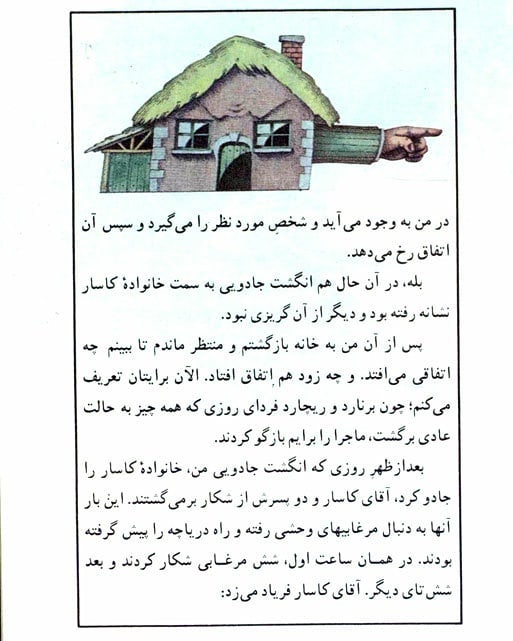 در من به وجود می‌آید و شخصِ مورد نظر را می‌گیرد و سپس آن
اتفاق رخ می‌دهد.
بله، در آن حال هم انگشت جادویی به سمت خانوادهٔ کاسار
نشانه رفته بود و دیگر از آن گریزی نبود.
پس از آن من به خانه بازگشتم و منتظر ماندم تا ببینم چه
اتفاقی می‌افتد. و چه زود هم اِتفاق افتاد. الآن برایتان تعریف
می‌کنم؛ چون برنارد و ریچارد فردای روزی که همه چیز به حالت
عادی برگشت، ماجرا را برایم بازگو کردند.
بعدازظهرِ روزی که انگشت جادویی من، خانوادهٔ کاسار را
جادو کرد، آقای کاسار و دو پسرش از شکار برمی‌گشتند. این بار
آنها به دنبال مرغابیهای وحشی رفته و راه دریاچه را پیش گرفته
بودند. در همـان ساعت اول، شش مرغـابی شکار کردند و بعد
شش‌تای دیگر. آقای کاسار فریاد می‌زد: